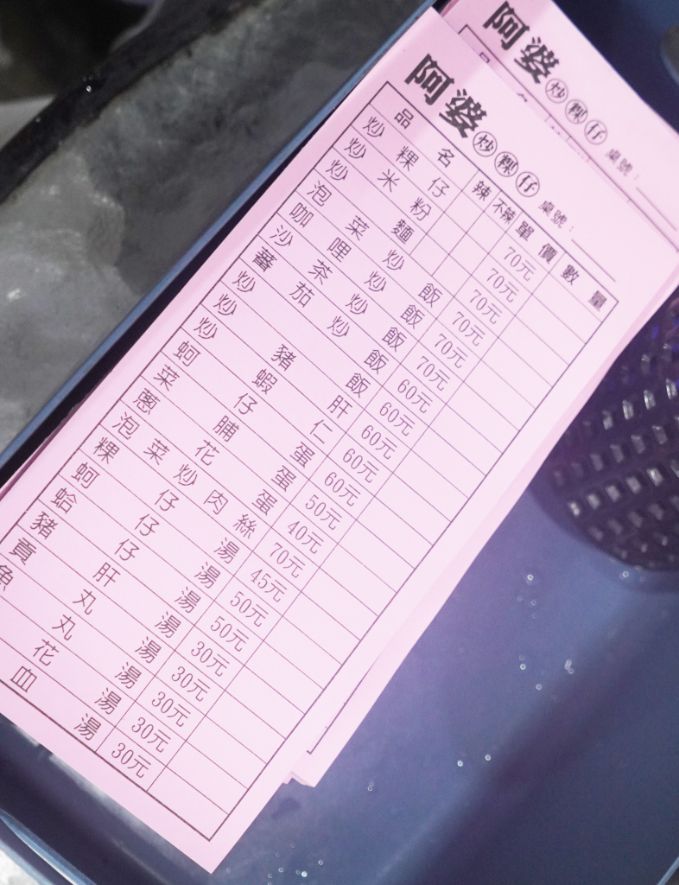 阿婆炒粿仔 桌號：
阿婆炒粿仔 桌號：
品名 辣 不辣 單價 數量
炒粿仔 70元
炒米粉 70元
炒麵 70元
泡菜炒飯 70元
咖哩炒飯 70元
沙茶炒飯 60元
蕃茄炒飯 60元
炒豬肝 60元
炒蝦仁 60元
蚵仔蛋 60元
菜脯蛋 50元
蔥花蛋 40元
泡菜炒肉絲 70元
粿仔湯 45元
蚵仔湯 50元
蛤仔湯 50元
豬肝湯 30元
貢丸湯 30元
魚丸湯 30元
花湯 30元
血湯 30元